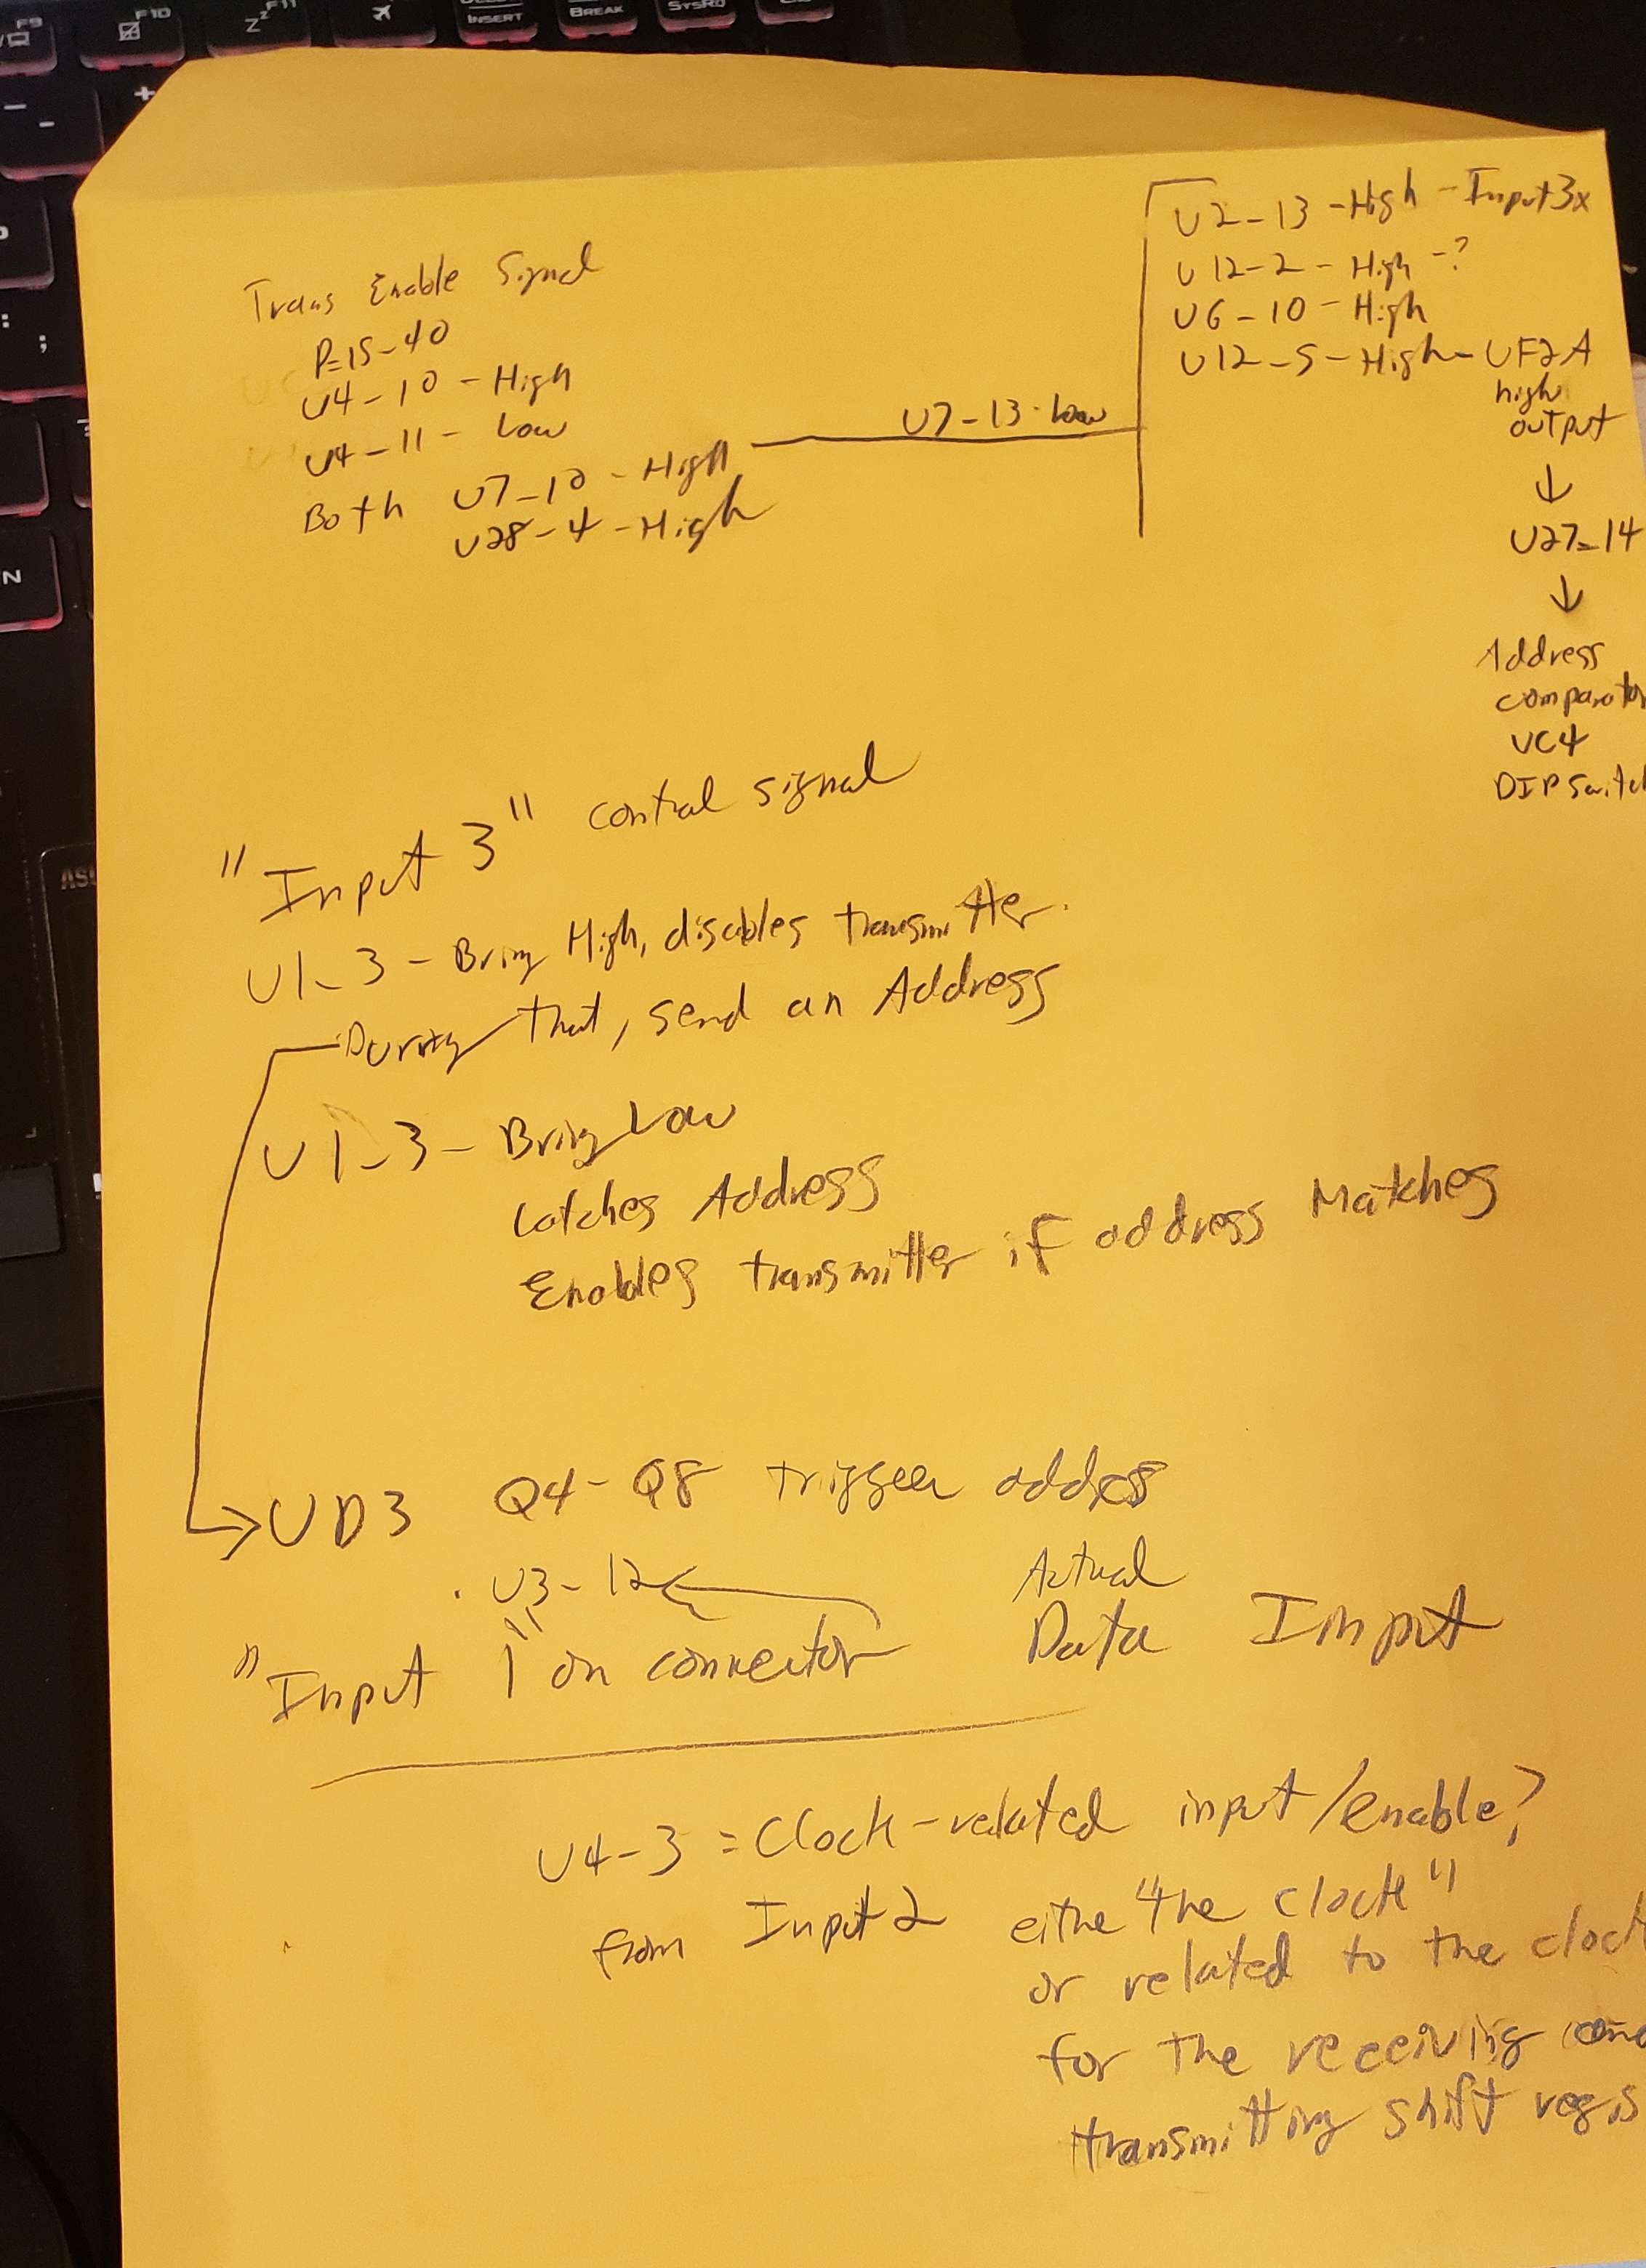 F9
F10
F11
INSERT
BREAK
SYSRQ
N
Trans Enable Signal
P=15-40
U4-10-High
U4-11-Low
Both U7-10-High
U28-4-High
U7-13-Low
U2-13-High-Input3x
U12-2-High-?
U6-10-High
U12-5-High-UF2A
high
output
↓
U27-14
↓
Address
comparator
UC4
DIP Switch
"Input 3" control signal
U1-3-Bring High, disables transmitter.
During that, send an Address
U1-3-Bring Low
Latches Address
Enables transmitter if address Matches
→UD3 Q4-Q8 trigger addres
U3-12
"Input 1" on connector
Actual
Data Input
U4-3=Clock-related input/enable?
from Input 2 eithe "the clock"
or related to the clock
for the receiving and
transmitting shift regis